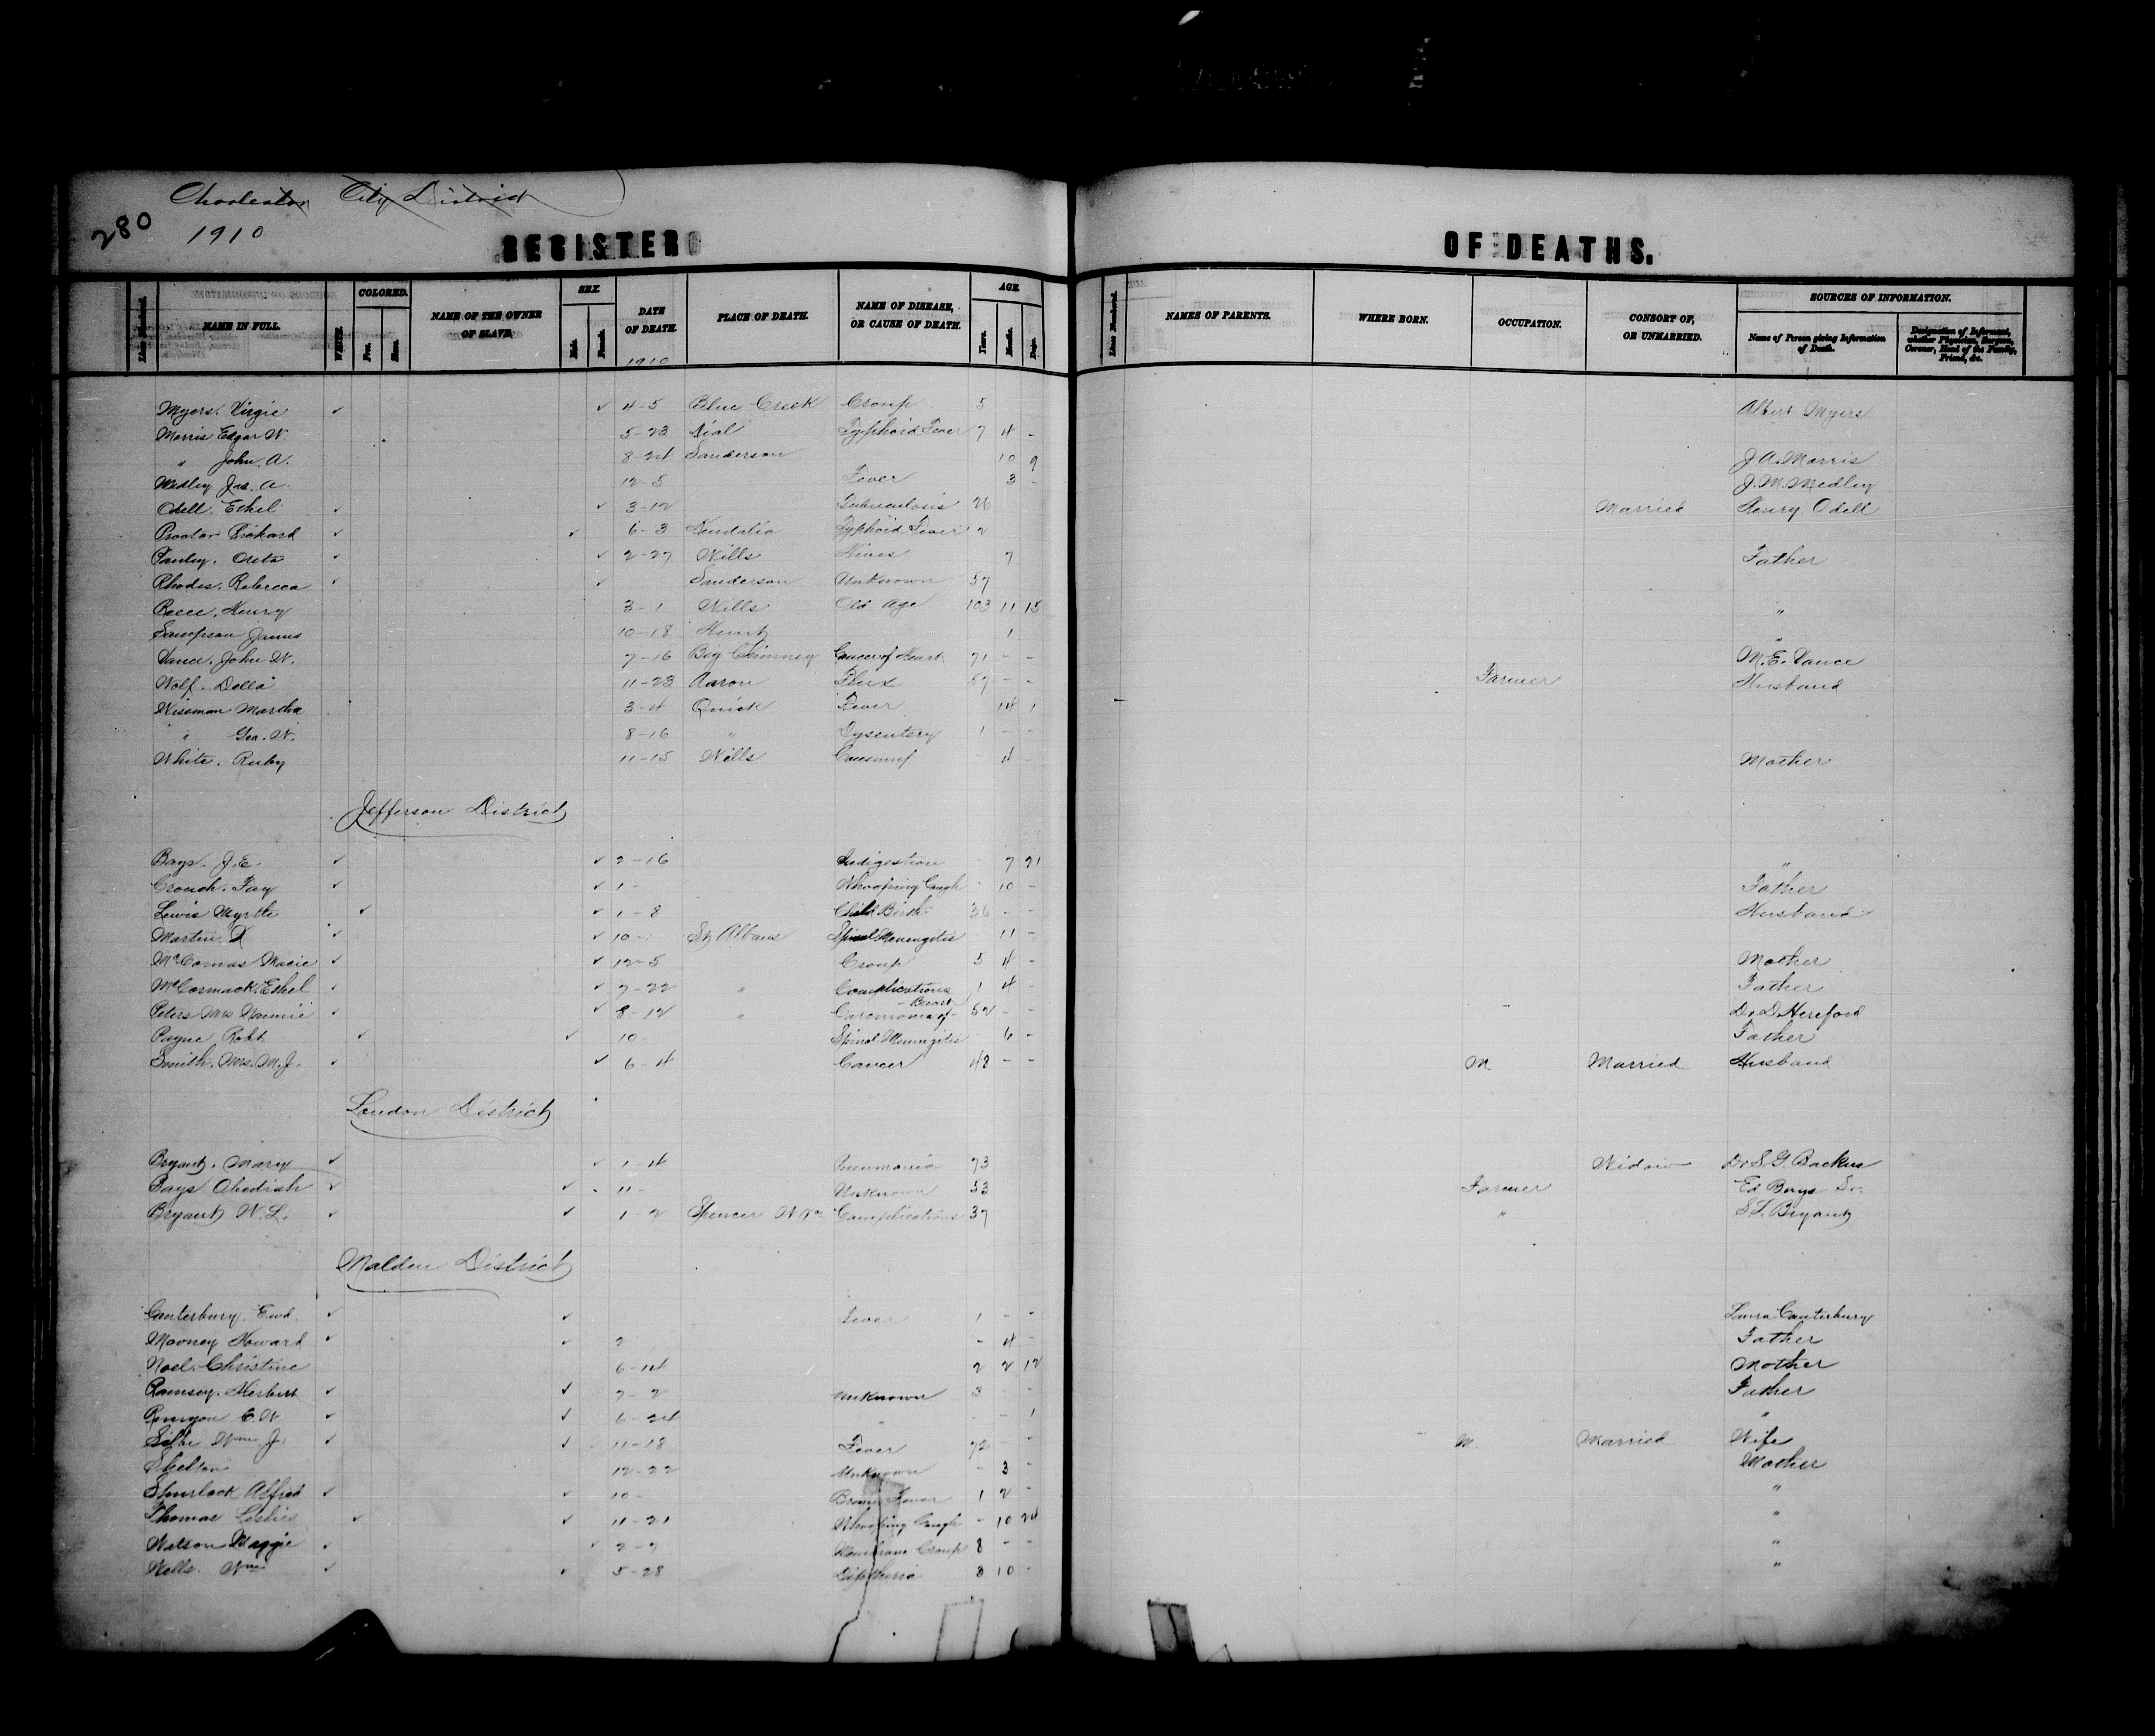 280
Charleston City District
1910
REGISTER OF DEATHS.
Line Numbered. NAME IN FULL. WHITE. COLORED. Free. Slave. NAME OF THE OWNER OF SLAVE. SEX. Male. Female. DATE OF DEATH. PLACE OF DEATH. NAME OF DISEASE, OR CAUSE OF DEATH. AGE. Years. Months. Days. Lines Numbered. NAMES OF PARENTS. WHERE BORN. OCCUPATION. CONSORT OF, OR UNMARRIED. SOURCES OF INFORMATION. Name of Person giving Information of Death. Designation of Informant, whether Physician, Surgeon, Coroner, Head of the Family, Friend, &c.
1910
Myers. Virgie ✓ ✓ 4-5 Blue Creek Croup 5 Albert Myers
Morris Edgar W. 5-23 Dial Typhoid Fever 7 4 -
" John. A. 8-24 Sanderson 10 9 J A. Morris
Medley Jas. A. 12-5 Fever 3 - J. M. Medley
Odell. Ethel ✓ ✓ 3-12 Tuberculosis 26 Married Henry Odell
Proctor Richard ✓ ✓ 6-3 Kendalia Typhoid Fever 2
Pauley. ✓ ✓ 2-27 Wills Hives 7 Father
Rhodes. Rebecca ✓ ✓ Sanderson Unknown 57
Reece. Henry 3-1 Wills Old Age 103 11 15 "
Sampson James 10-18 Hunt 1 "
Vance. John W. 7-16 Big Chimney Cancer of Heart 71 - - M. E. Vance
Wolf. Della 11-23 Aaron Flux 57 - - Farmer Husband
Wiseman Martha 3-4 Quick Fever 14 1
" Geo. W. 8-16 " Dysentery 1 - -
White. Ruby 11-15 Wills Consump - 4 - Mother
Jefferson District
Bays. J. E. ✓ ✓ 2-16 Indigestion - 7 21 "
Crouch. Fay ✓ ✓ 1- Whooping Cough - 10 - Father
Lewis Myrtle ✓ ✓ 1-8 Child Birth 36 - - Husband
Martin. X ✓ ✓ 10- St Albans Spinal Menengitis 11 -
McComas Macie ✓ ✓ 12-5 Croup 5 4 - Mother
McCormack. Ethel ✓ ✓ 7-22 " Complications 1 4 - Father
Peters Mrs Nannie ✓ ✓ 8-12 " Carcinoma of - Breast 52 - - Dr. D. Hereford
Payne Robt ✓ ✓ 10- Spinal Menengitis 6 - Father
Smith. Mrs. M. J. ✓ ✓ 6-4 Cancer 48 - - M Married Husband
Loudon District
Bryant. Mary ✓ ✓ 1-4 Pneumonia 73 Widow Dr S. G. Backus
Bays Abedish ✓ ✓ 11- Unknown 53 Farmer Ed Bays Sr.
Bryant W. L. ✓ ✓ 1-2 Spencer W Va Complications 37 " S L. Bryant
Malden District
Canterbury. Ewd. ✓ ✓ Fever 1 - - Laura Canterbury
Mooney Howard ✓ ✓ 2 - 4 - Father
Noel. Christine 6-14 2 2 12 Mother
Ramsey. Herbert ✓ ✓ 7-2 Unknown 3 - - Father
Runyon E. W. ✓ ✓ 6-24 " - - 1 "
Wm J. ✓ ✓ 11-18 Fever 72 - - M. Married Wife
Skelton 12-22 Unknown - 3 - Mother
Spurlock Alfred ✓ ✓ 10- Brain Fever 1 2 - "
Thomas Leslie ✓ ✓ 11-21 Whooping Cough - 10 24 "
Watson Maggie ✓ ✓ 2-7 Membrane Croup 8 - - "
Wells. Wm ✓ ✓ 5-28 Diptheria 3 10 - "